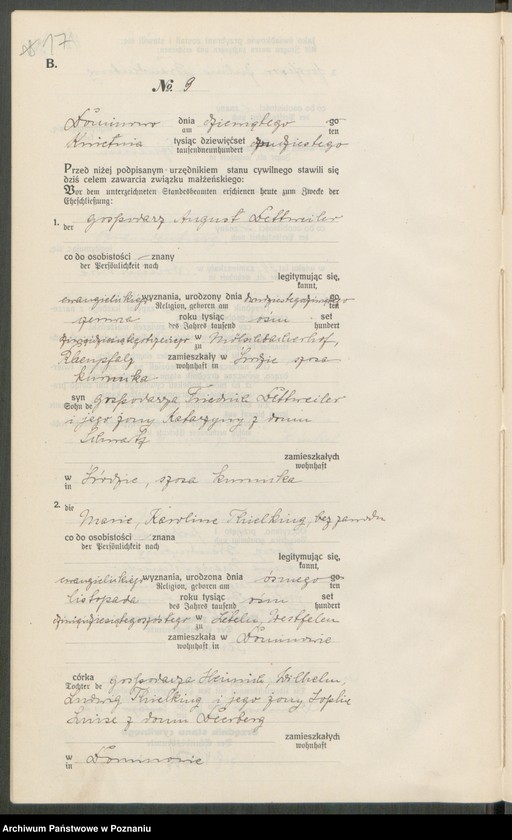 17
B.
No. 9
Dominowo dnia dziewiątego go
am ten
Kwietnia tysiąc dziewięćset dwudziestego
tausendneunhundert
Przed niżej podpisanym urzędnikiem stanu cywilnego stawili się
dziś celem zawarcia związku małżeńskiego:
Vor dem unterzeichneten Standesbeamten erschienen heute zum Zwecke der
Eheschließung:
1. der gospodarz August Dettweiler
co do osobistości znany
der Persönlichkeit nach
legitymując się,
kannt,
ewangielickiego wyznania, urodzony dnia go
Religion, geboren am ten
czerwca roku tysiąc ośm set
des Jahres tausend hundert
w
zu
Rheinpfalz zamieszkały w Środzie szosa
wohnhaft in
kurnicka
syn gospodarza Friedrich Dettweiler
Sohn de
i jego żony Katarzyny z domu
zamieszkałych
wohnhaft
w Środzie, szosa kurnicka
in
2. die Marie, Karoline Thielking, bez zawodu
co do osobistości znana
der Persönlichkeit nach
legitymując się,
kannt,
ewangielickiego wyznania, urodzona dnia ósmego go
Religion, geboren am ten
listopada roku tysiąc ośm set
des Jahres tausend hundert
w Westfalen
zu
zamieszkała w Dominowie
wohnhaft in
córka gospodarza Heinrich, Wilhelm,
Tochter de
Ludwig Thielking i jego żony Sophie
Luise z domu Deerberg
zamieszkałych
wohnhaft
w Dominowie
in
Archiwum Państwowe w Poznaniu